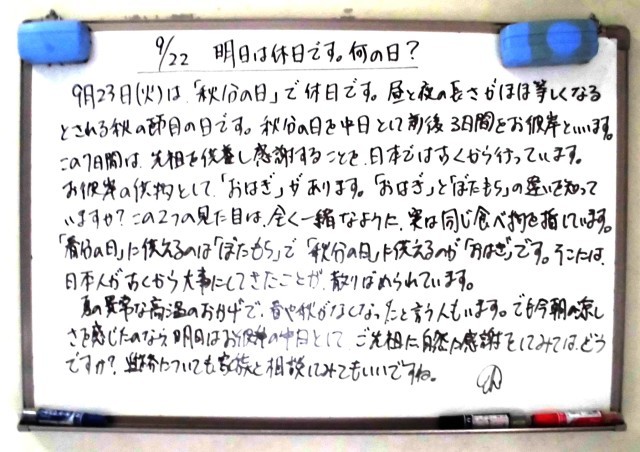 9/22 明日は休日です。何の日？
9月23日(火)は、「秋分の日」で休日です。昼と夜の長さがほぼ等しくなる
とされる秋の節目の日です。秋分の日を中日として前後3日間をお彼岸といいます。
この7日間は、先祖を供養し感謝することを、日本では古くから行っています。
お彼岸の供物として、「おはぎ」があります。「おはぎ」と「ぼたもち」の違いを知って
いますか？この2つの見た目は、全く一緒なように、実は同じ食べ物を指しています。
「春分の日」に供えるのは「ぼたもち」で「秋分の日」に供えるのが「おはぎ」です。そこには、
日本人が古くから大事にしてきたことが、散りばめられています。
夏の異常な高温のおかげで、春や秋がなくなったと言う人もいます。でも今朝の涼し
さを感じたのなら、明日はお彼岸の中日として、ご先祖に自然に感謝をしてみては、どう
ですか？進路についても家族と相談してみてもいいですね。